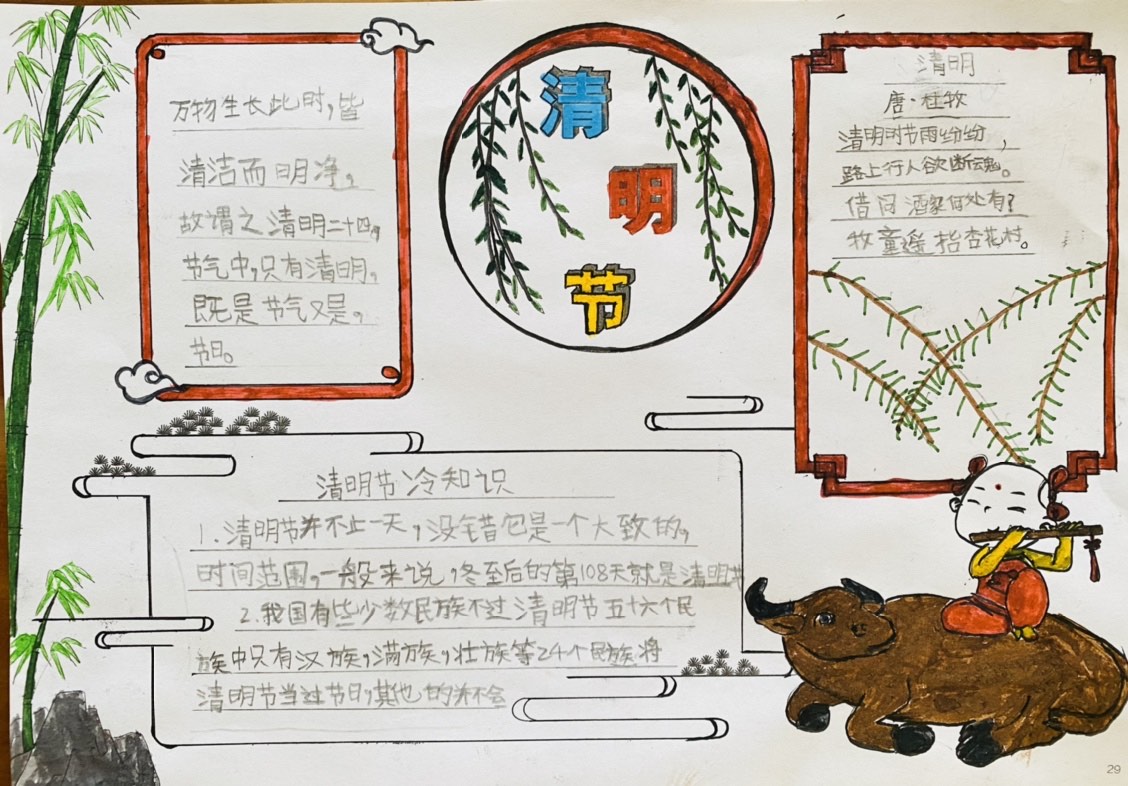 万物生长此时，皆
清洁而明净。
故谓之清明二十四
节气中，只有清明，
既是节气又是，
节日。
清
明
节
清明
唐·杜牧
清明时节雨纷纷，
路上行人欲断魂。
借问酒家何处有？
牧童遥指杏花村。
清明节冷知识
1.清明节并不止一天，没错它是一个大致的，
时间范围，一般来说，冬至后的第108天就是清明节
2.我国有些少数民族不过清明节五十六个民
族中只有汉族，满族，壮族等24个民族将
清明节当过节日，其他的并不会
29